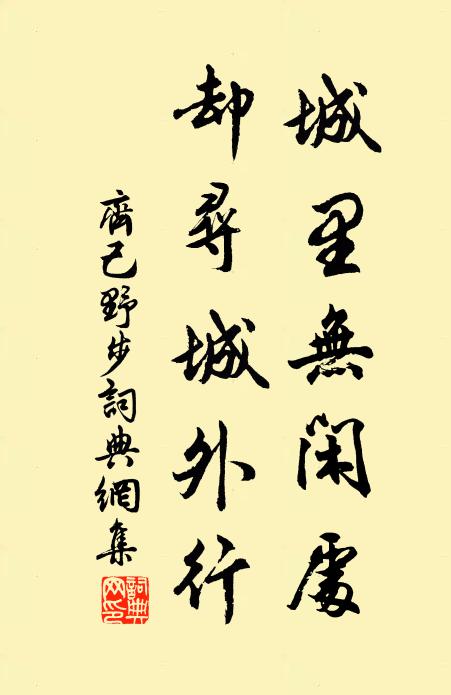 城里無閑處
却尋城外行
齊己野步詞典網集
詞典网印